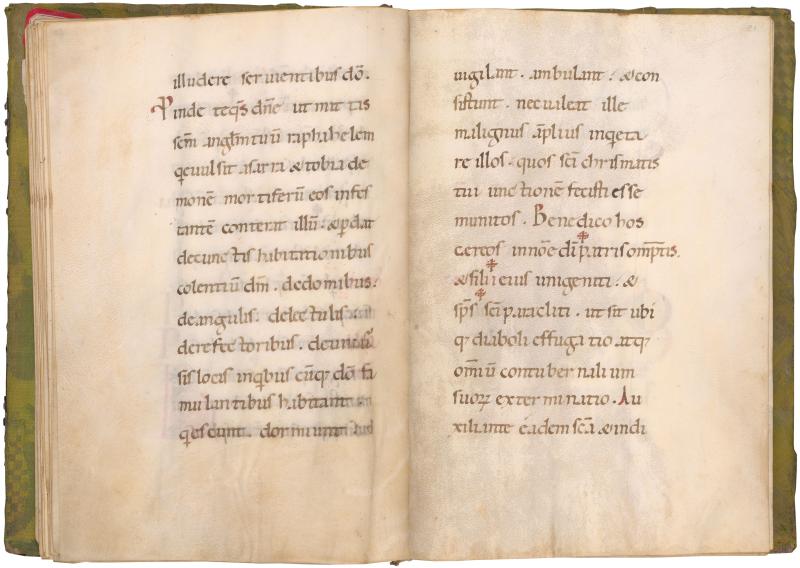 illudere ser vientibus dō.
Proinde teq̄s dn̄e ut mit tis
sc̄m anglm̄ tuū raphahelem
qevulsit asarra & tobia de
monē mortiferū eos infes
tantē conterat illū. & p̄dat
decunctis habitationibus
colentiū dm̄. dedomibus.
deangulis. delectulis
derefectoribus. deunius
sis locis inqibus cūq; dō fa
mulantibus habitant
q̄escunt. dormiunt
uigilant. ambulant. & con
sistunt. nec ualeat ille
malignus ap̄lius inqeta
re illos. quos sc̄i chrismatis
tui unctionē fecisti esse
munitos. Benedico hos
cereos innōe dī patris omp̄tis.
& filii eius unigeniti. &
sp̄s sc̄i paracliti. ut sit ubi
q; diaboli effugatio atq;
om̄iū contubernalium
suoꝝ exterminatio. Au
xiliante eadem sc̄a & indi